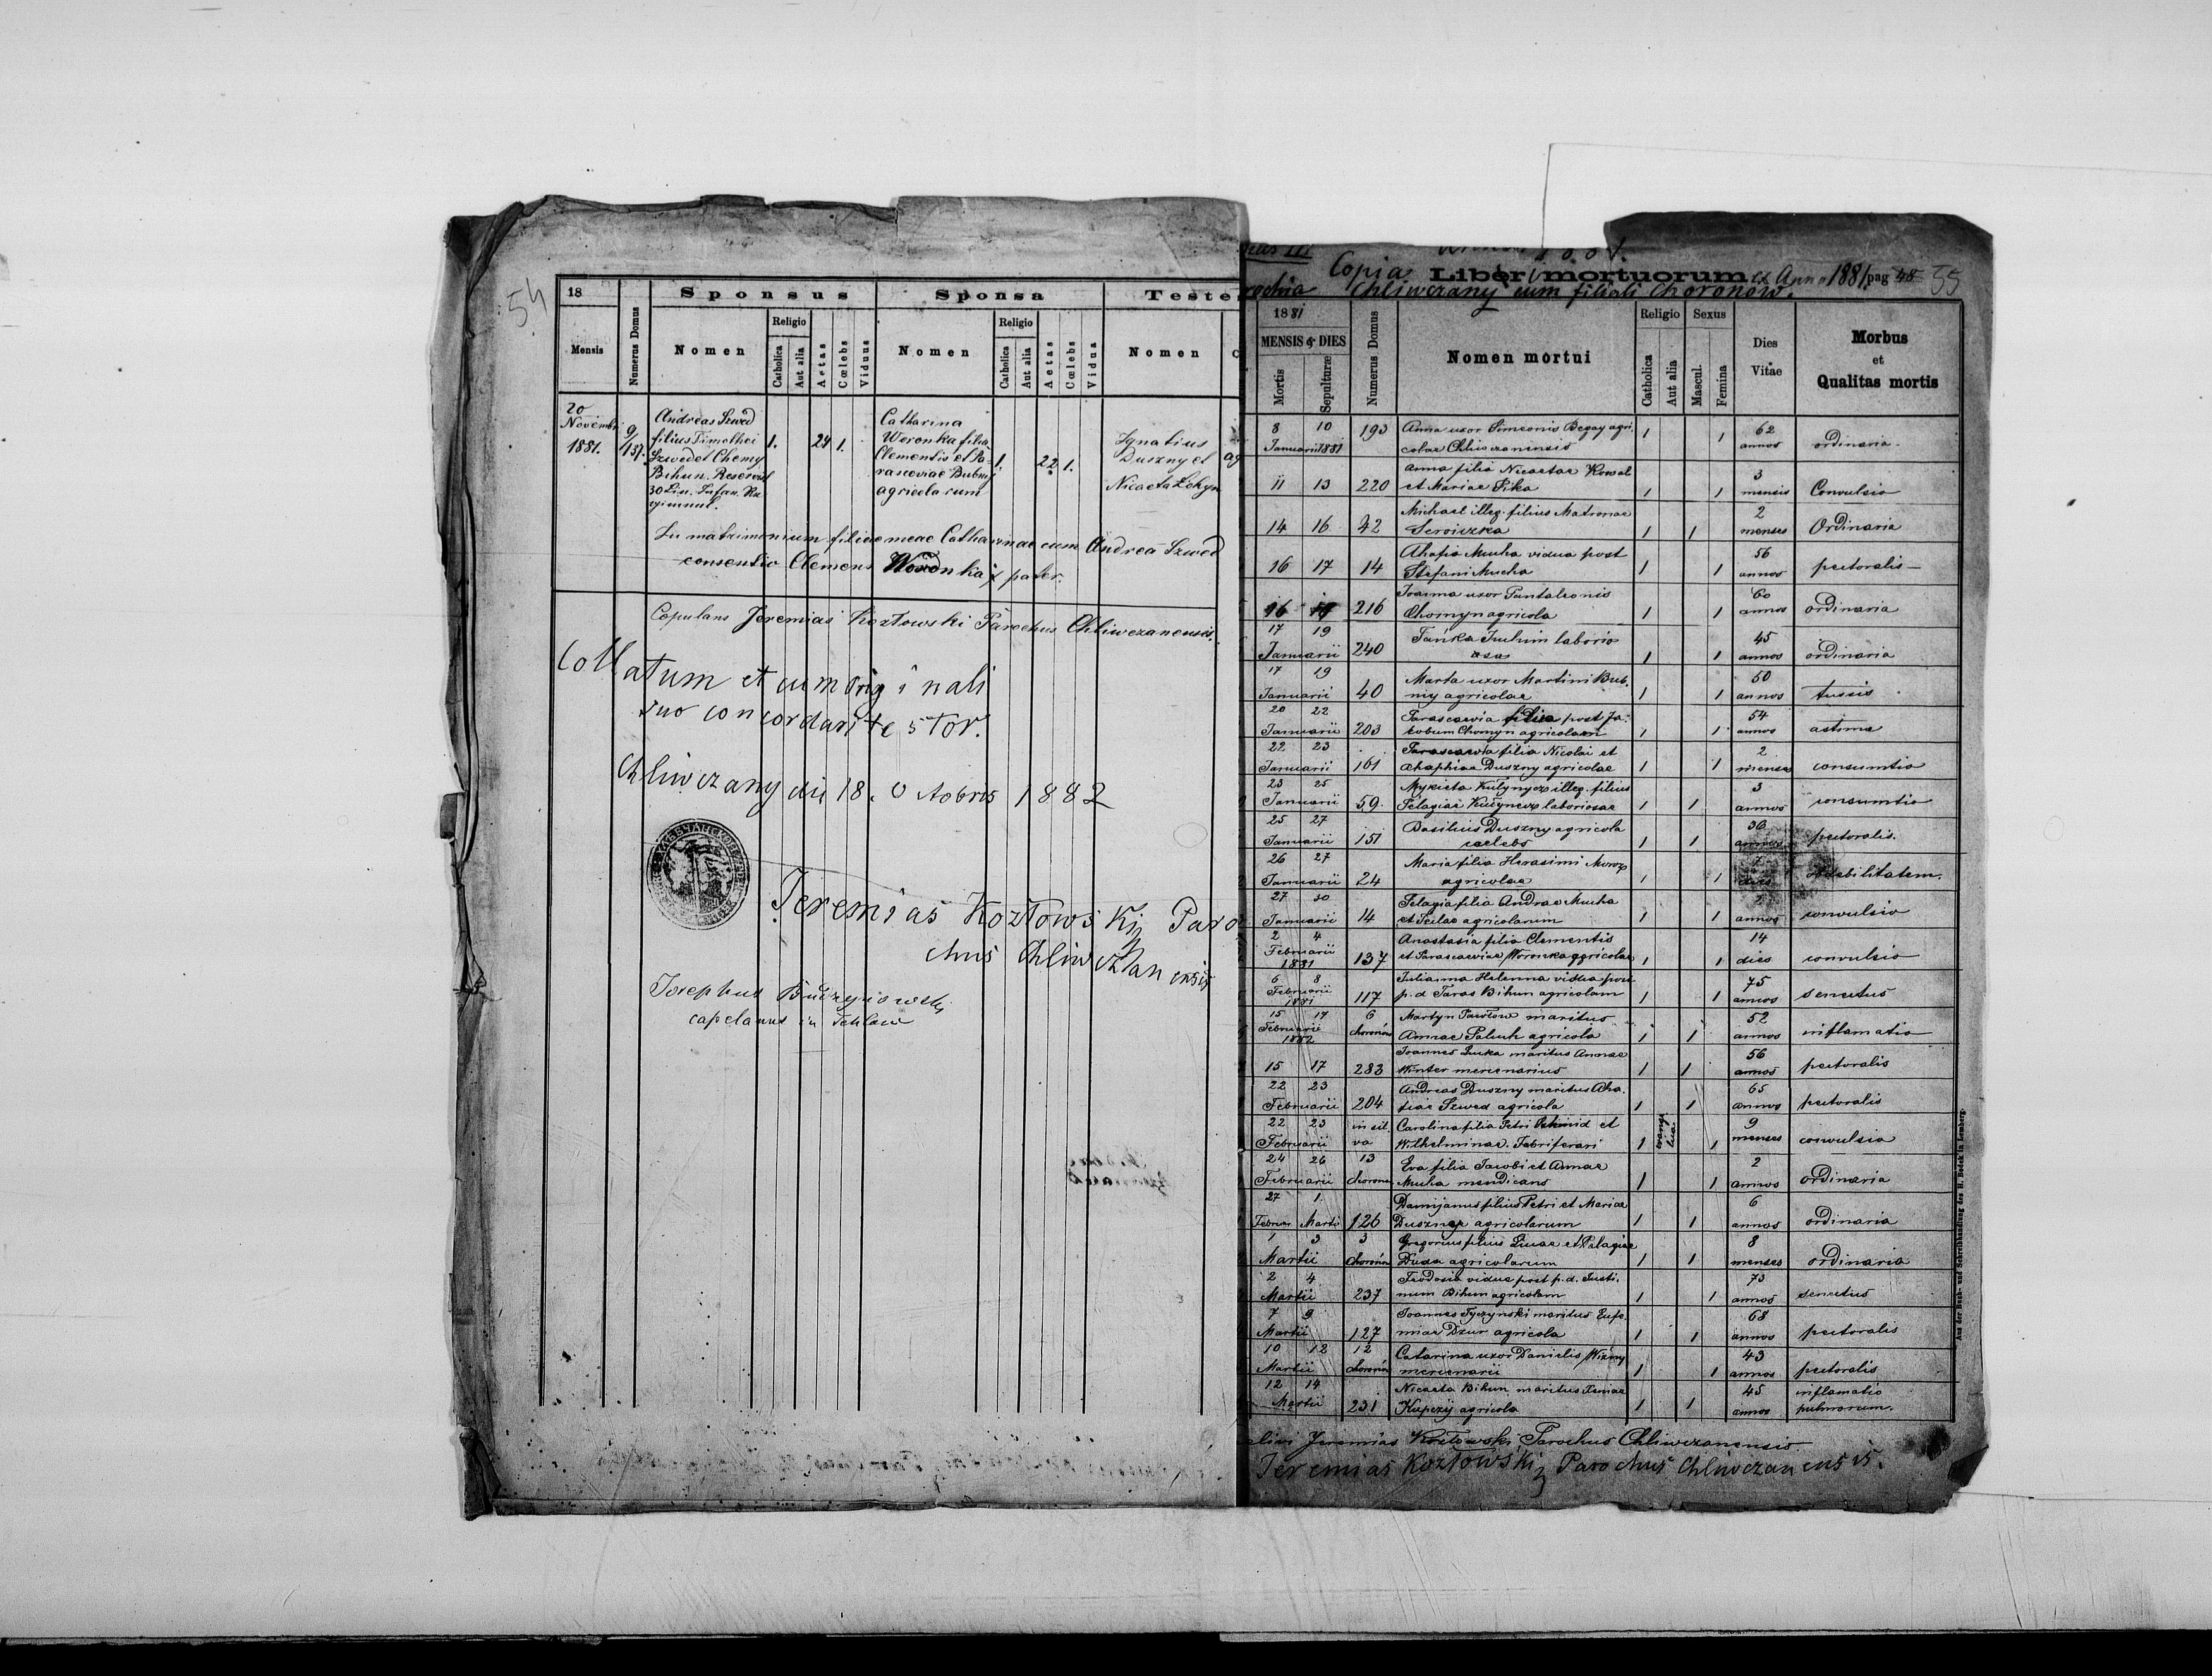 54
18
Sponsus
Sponsa
Teste
Mensis
Numerus Domus
Nomen
Religio
Catholica
Aut alia
Aetas
Cœlebs
Viduus
Nomen
Religio
Catholica
Aut alia
Aetas
Cœlebs
Vidua
Nomen
20
Novembr
1881.
9/137.
Andreas Szwed
filius Timothei
Szwed et
Bihun. Reservist
30 Lin. Infan. Re
giment.
1. 24 1.
Catharina
Weronka filia
Clementis et Pa-
rasceviae Bubnij
agricolarum
1. 22 1.
Ignatius
Duszny et
Nicaeta
ag
In matrimonium filiae meae Catharinae cum Andrea Szwed
consentio Clemens Woronka x pater.
Copulans Jeremias Kozłowski Parochus Chliwczanensis.
Collatum et cum originali
suo concordari testor.
Chliwczany die 18. Octobris 1882
Jeremias Kozłowskij Paro
chus Chliwczanensis
Josephus
capelanus in
Copia Liber mortuorum ex Anno 1881. pag 48 55
rochia Chliwczany cum filiali Choronow.
1881
MENSIS & DIES
Mortis
Sepulturæ
Numerus Domus
Nomen mortui
Religio
Catholica
Aut alia
Sexus
Mascul.
Femina
Dies
Vitae
Morbus
et
Qualitas mortis
8 10 193 Anna uxor Simeonis Begay agri- 1 1 62
Januarii 1881 colae Chliwczanensis annos ordinaria
11 13 220 Anna filia Nicaetae Kowal 3
et Mariae Pika 1 1 mensis Convulsio
14 16 42 Michael illeg. filius Matronae 2
1 1 menses Ordinaria
16 17 14 Ahafia Mucha vidua post 56
Stefani Mucha 1 1 annos pectoralis
16 216 Joanna uxor Pantaleonis 60
Chomyn agricola 1 1 annos ordinaria
17 19 240 laborio 45
Januarii sa 1 1 annos ordinaria
17 19 Marta uxor Martini Bub- 50
Januarii 40 niy agricolae 1 1 annos tussis
20 22 Parascewia post Ja- 54
Januarii 203 cobum Chomyn agricolam 1 1 annos astma
22 23 Parascewia filia Nicolai et 2
Januarii 161 Ahaphiae Duszny agricolae 1 1 menses consumtio
23 25 Mykieta illeg. filius 3
Januarii 59. Pelagiae laboriosae 1 1 annos consumtio
25 27 Basilius Duszny agricola 36
Januarii 151 caelebs 1 1 annos pectoralis.
26 27 Maria filia Herasimi Moroz 7
Januarii 24 agricolae 1 1 dies debilitatem.
27 30 Pelagia filia Andreae Mucha 2
Januarii 14 et agricolarum 1 1 annos convulsio
2 4 Anastasia filia Clementis 14
Februarii 1881 137 et Parasceviae Woronka agricolae 1 1 dies convulsio
6 8 Julianna Helenna vidua post 75
Februarii 1881 117 p. d. Taras Bihun agricolam 1 1 annos senectus
15 17 6 Martyn Pawłow maritus 52
Februarii 1882 Choronów Annae Paluch agricola 1 1 annos inflamatio
15 17 283 Joannes Puka maritus Annae 56
Winter mercenarius 1 1 annos pectoralis
22 23 Andreas Duszny maritus Aha- 65
Februarii 204 fiae Szwed agricola 1 1 annos pectoralis
22 23 in sil- Carolina filia Petri Schmid et 9
Februarii va Wilhelminae. Fabriferari 1 evange lica 1 menses convulsio
24 26 13 Eva filia Jacobi et Annae 2
Februarii Choronów Mucha mendicans 1 1 annos ordinaria
27 1 Damijanus filius Petri et Mariae 6
Februar Marti 126 Duszney agricolarum 1 1 annos ordinaria
1 3 3 Gregorius filius Lucae et Pelagiae 8
Martii Choronów Duda agricolarum 1 1 menses ordinaria
2 4 Teodosia vidua post p. d. Justi- 73
Martii 237 num Bihun agricolam 1 1 annos senectus
7 9 Joannes Tyczynski maritus Eufe- 68
Martii 127 miae Dzur agricola 1 1 annos pectoralis
10 12 12 Catarina uxor Danielis 43
Martii Choronów mercenarii 1 1 annos pectoralis
12 14 Nicaeta Bihun maritus Xeniae 45 inflamatio
Martii 231 Kupczij agricola 1 1 annos pulmorum.
Jeremias Kozłowski Parochus Chliwczanensis
Jeremias Kozłowskij Parochus Chliwczanensis.
Aus der Buch- und Schreibhandlung des H. Bodek in Lemberg.